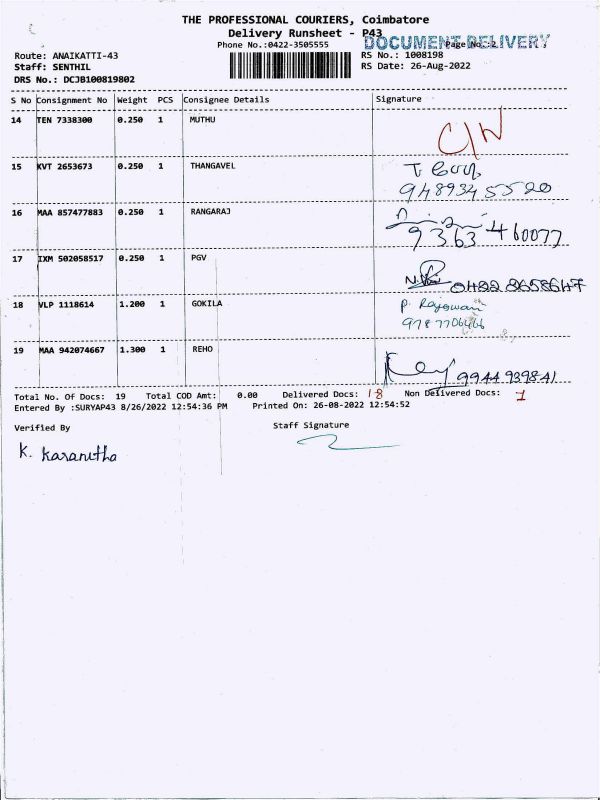 THE PROFESSIONAL COURIERS, Coimbatore
Delivery Runsheet - P43
Phone No.:0422-3505555 DOCUMENT DELIVERY Page No.:2
Route: ANAIKATTI-43 RS No.: 1008198
Staff: SENTHIL RS Date: 26-Aug-2022
DRS No.: DCJB100819802
S No Consignment No Weight PCS Consignee Details Signature
14 TEN 7338300 0.250 1 MUTHU
C/N
15 KVT 2653673 0.250 1 THANGAVEL
9489345520
16 MAA 857477883 0.250 1 RANGARAJ
9363460077
17 IXM 502058517 0.250 1 PGV
0422 8658647
18 VLP 1118614 1.200 1 GOKILA P. Rajeswari
9787706466
19 MAA 942074667 1.300 1 REHO
9944939841
Total No. Of Docs: 19 Total COD Amt: 0.00 Delivered Docs: 18 Non Delivered Docs: 1
Entered By :SURYAP43 8/26/2022 12:54:36 PM Printed On: 26-08-2022 12:54:52
Verified By Staff Signature
K.